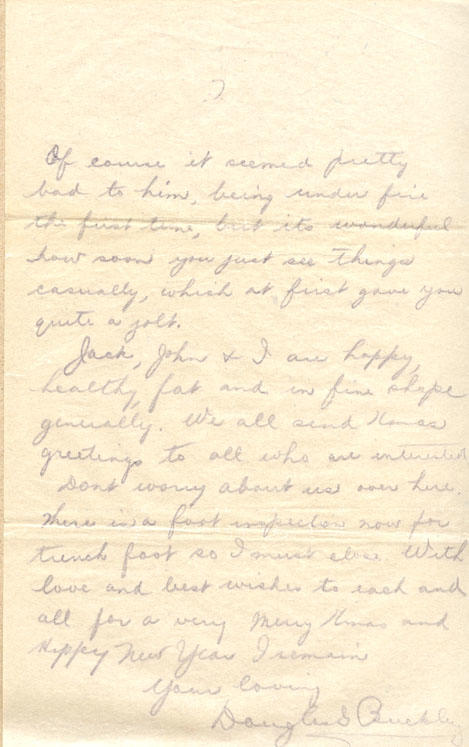 7
Of course it seemed pretty
bad to him, being under fire
the first time, but its wonderful
how soon you just see things
casually, which at first gave you
quite a jolt.
Jack, John & I are happy,
healthy, fat and in fine shape
generally. We all send Xmas
greetings to all who are interested
Dont worry about us over here.
There is a foot inspection now for
trench foot so I must close. With
love and best wishes to each and
all for a very Merry Xmas and
Happy New Year I remain
Your loving
Douglas Buckley